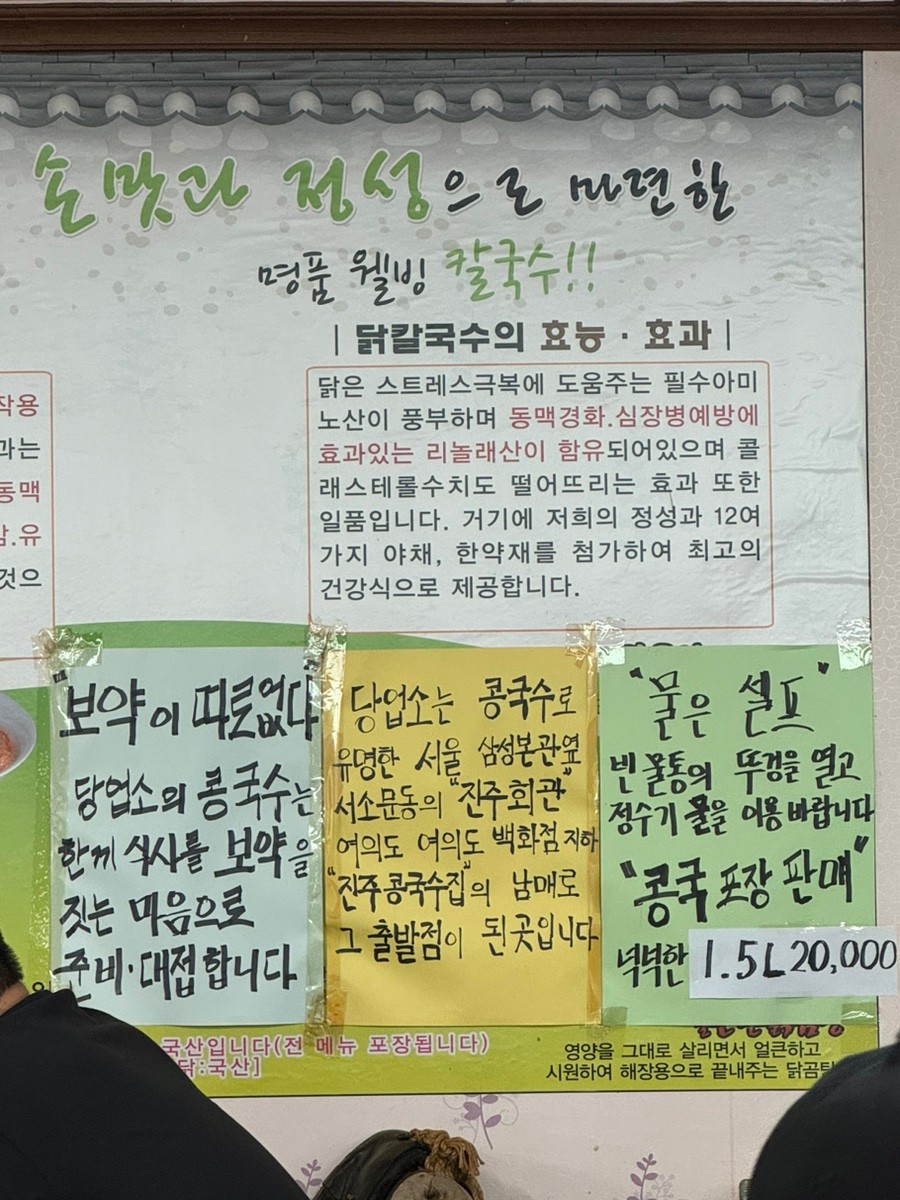 손맛과 정성으로 마련한
명품 웰빙 칼국수!!
| 닭칼국수의 효능 · 효과 |
닭은 스트레스극복에 도움주는 필수아미
노산이 풍부하며 동맥경화.심장병예방에
효과있는 리놀래산이 함유되어있으며 콜
래스테롤수치도 떨어뜨리는 효과 또한
일품입니다. 거기에 저희의 정성과 12여
가지 야채, 한약재를 첨가하여 최고의
건강식으로 제공합니다.
작용
과는
동맥
.유
것으
"보약이 따로없다"
당업소의 콩국수는
한께 식사를 보약을
짓는 마음으로
준비·대접합니다
당업소는 콩국수로
유명한 서울 삼성본관옆
서소문동의 "진주회관"
여의도 여의도 백화점 지하
"진주콩국수집"의 남매로
그 출발점이 된곳입니다
"물은 셀프"
빈 물통의 뚜껑을 열고
정수기 물을 이용바랍니다
"콩국 포장 판매"
넉넉한 1.5L 20,000
국산입니다(전 메뉴 포장됩니다)
닭:국산]
영양을 그대로 살리면서 얼큰하고
시원하여 해장용으로 끝내주는 닭곰탕